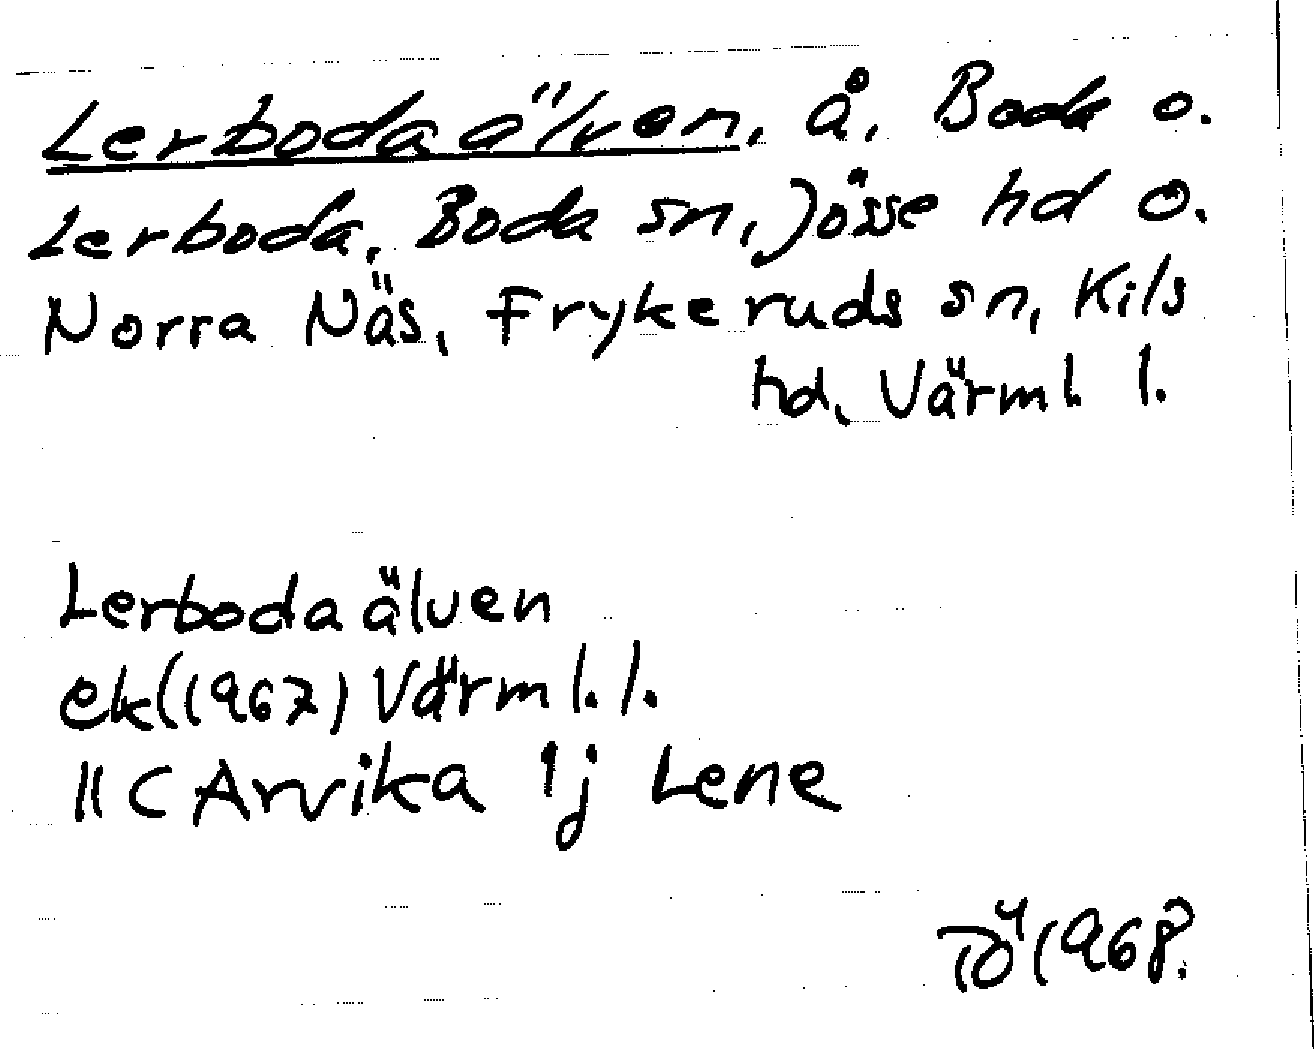 Lerbodaälven, å, Boda o.
Lerboda, Boda sn, Jösse hd o.
Norra Näs, Frykeruds sn, Kils
hd, Värml. l.
Lerbodaälven
ek (1967) Värml. l.
11C Arvika 1j Lene
TÖ 1968.